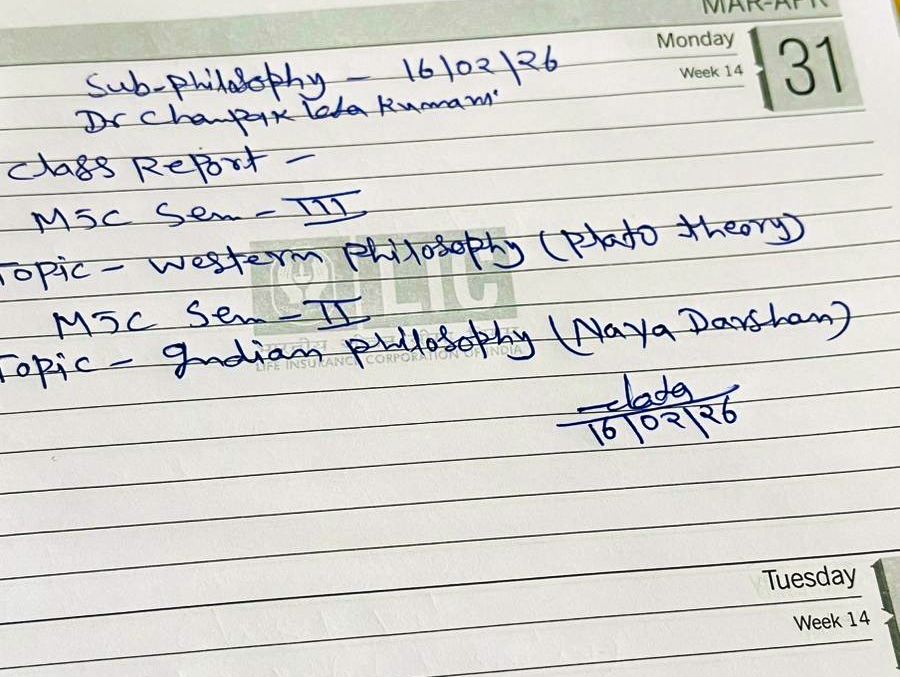 MAR-APR
Monday
31
Week 14
Sub-Philosophy - 16/02/26
Dr Champak lata Kumari
Class Report -
MJC Sem - III
Topic - Western Philosophy (Plato theory)
MJC Sem - II
Topic - Indian Philosophy (Naya Darshan)
LIC
LIFE INSURANCE CORPORATION OF INDIA
lata
16/02/26
Tuesday
Week 14